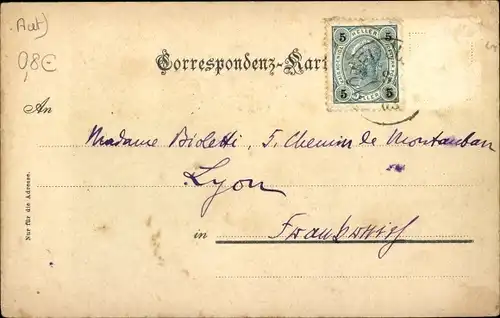 Aut)
0,8€
Correspondenz-Karte
5 HELLER 5
5 5
An
Madame Bioletti, 5. Chemin de Montauban
Lyon
in Frankreich
Nur für die Adresse.